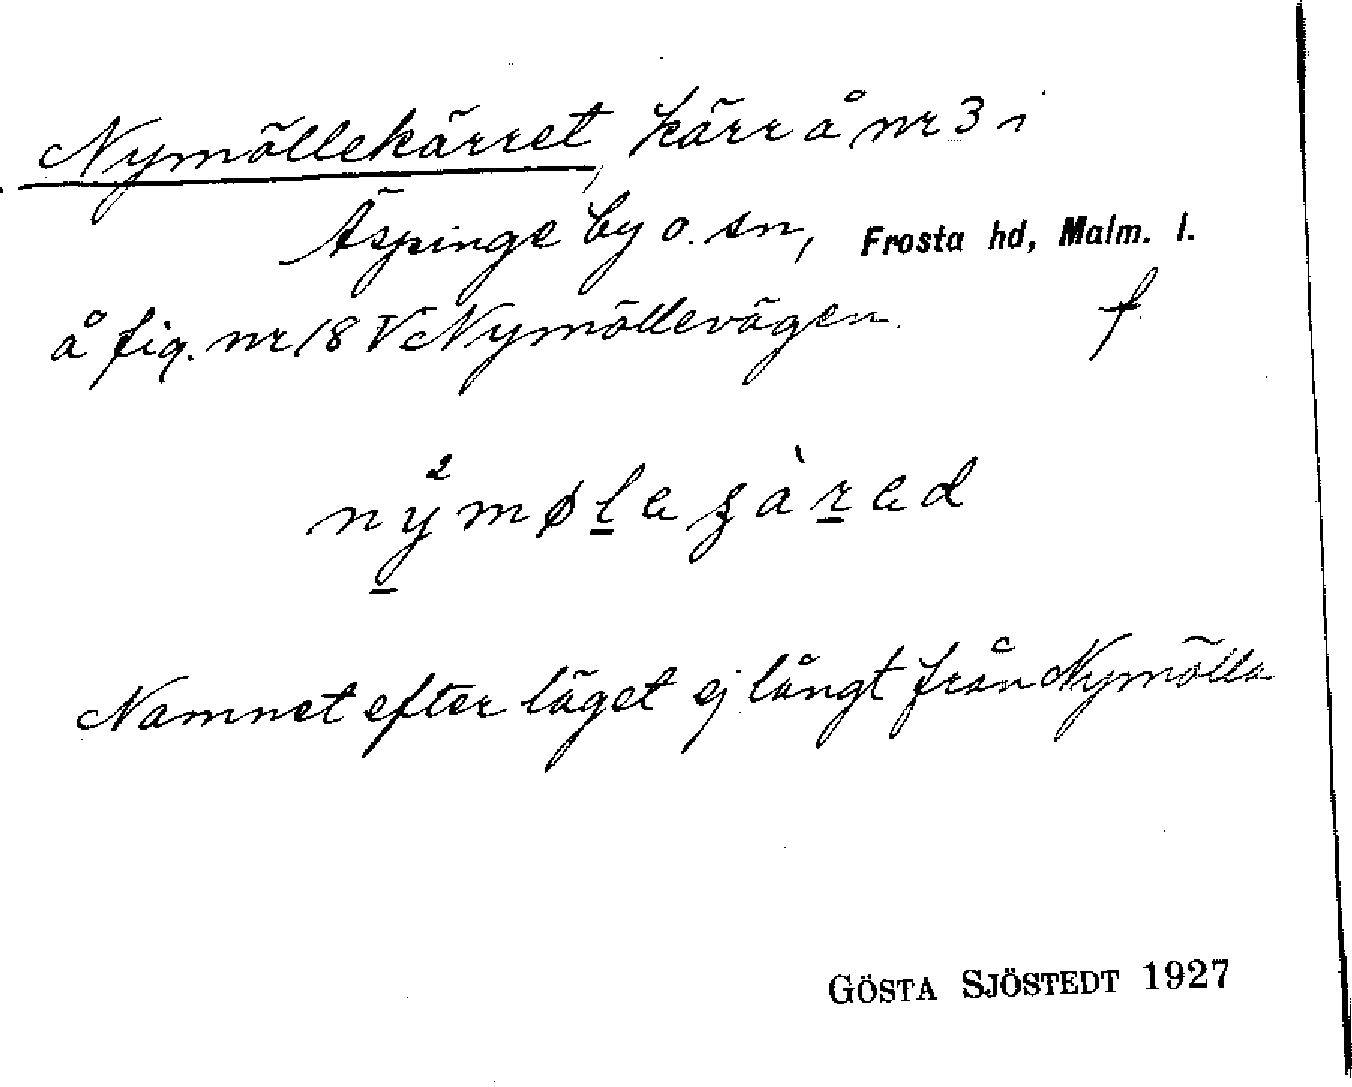 Nymöllekärret, kärr å nr 3 i
Äspinge by o. sn, Frosta hd, Malm. l.
å fig. nr 18 V Nymöllevägen. f
Namnet efter läget ej långt från Nymölla
GÖSTA SJÖSTEDT 1927